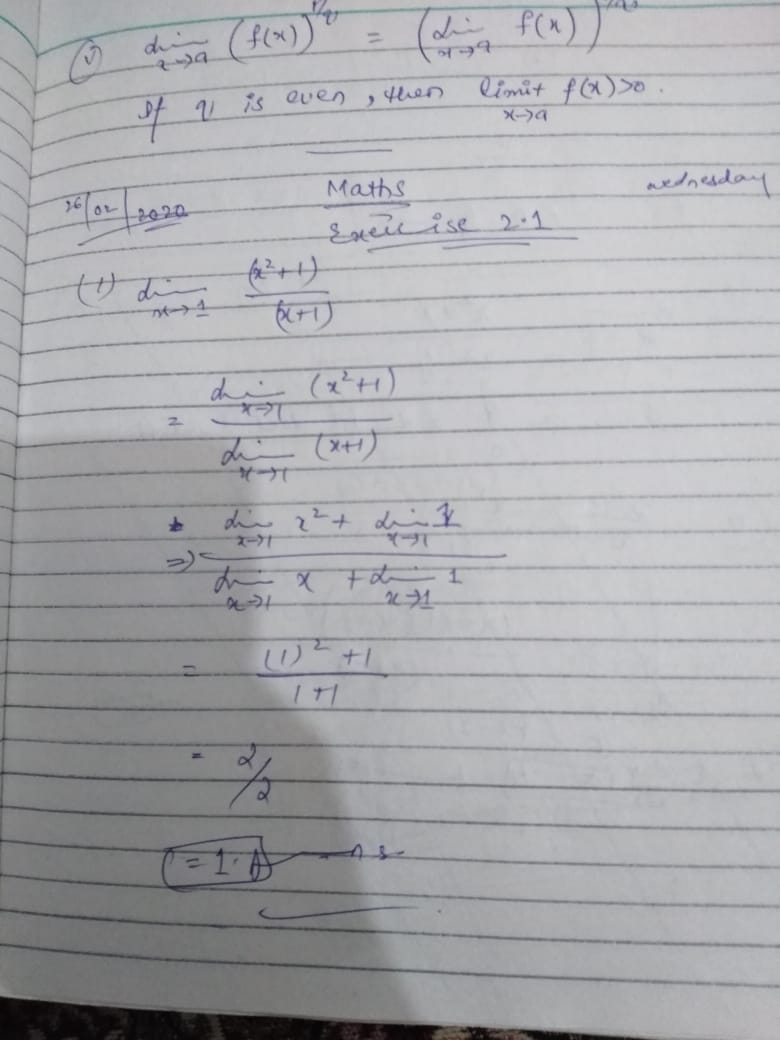 (v) lim x→a (f(x))^p/q = (lim x→a f(x))^p/q
If q is even, then limit x→a f(x)>0.
26/02/2020 Maths wednesday
Exercise 2.1
(1) lim x→1 (x²+1)/(x+1)
= lim x→1 (x²+1) / lim x→1 (x+1)
=> lim x→1 x² + lim x→1 1 / lim x→1 x + lim x→1 1
= (1)²+1 / 1+1
= 2/2
= 1. Ans